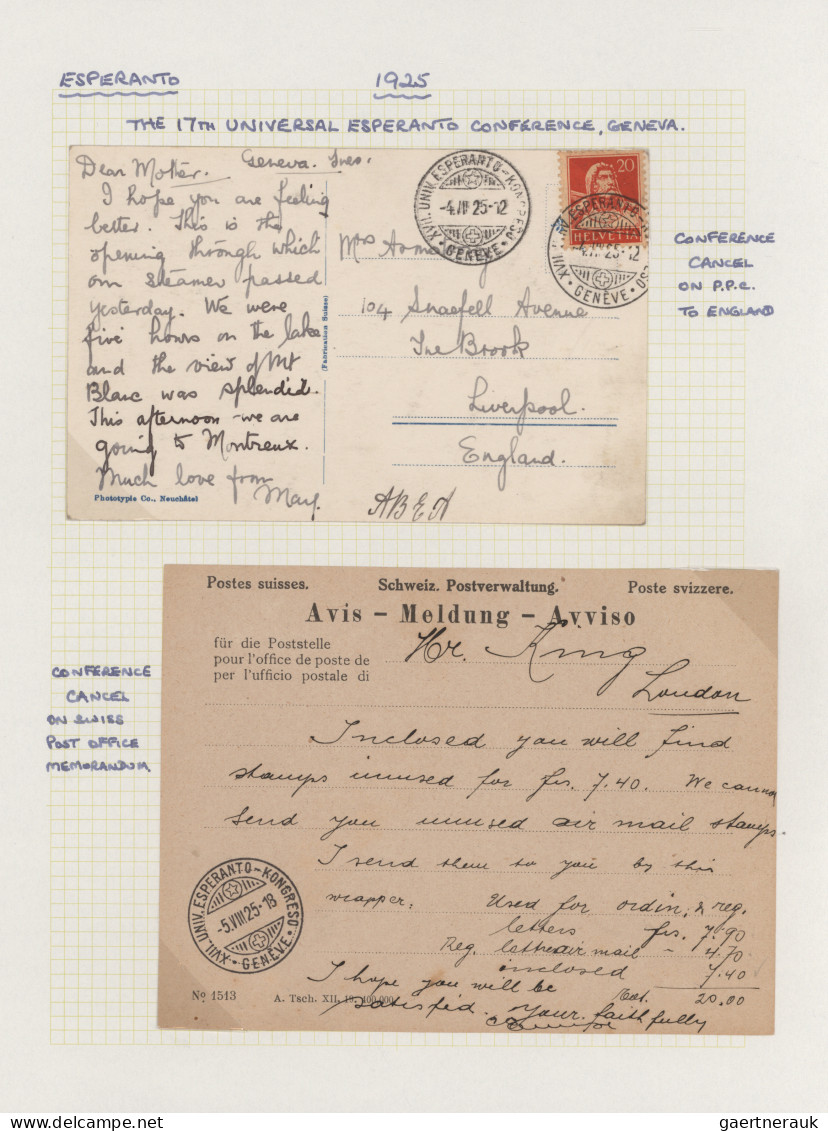 ESPERANTO
1925
THE 17TH UNIVERSAL ESPERANTO CONFERENCE, GENEVA.
Dear Mother. Geneva. Tues.
I hope you are feeling
better. This is the
opening through which
our steamer passed
yesterday. We were
five hours on the lake
and the view of Mt
Blanc was splendid.
This afternoon we are
going to Montreux.
Much love from
Mary.
Phototypie Co., Neuchâtel
(Fabrication Suisse)
XVII. UNIV. ESPERANTO-KONGRESO
-4.VIII 25-12
• GENÈVE •
20
HELVETIA
XVII. UNIV. ESPERANTO-KONGRESO
-4.VIII 25-12
• GENÈVE •
Mrs
104 Snaefell Avenue
The Brook
Liverpool.
England.
ABEA
CONFERENCE
CANCEL
ON P.P.C.
TO ENGLAND
Postes suisses. Schweiz. Postverwaltung. Poste svizzere.
Avis – Meldung – Avviso
für die Poststelle
pour l'office de poste de
per l'ufficio postale di
Hr. King
London
Inclosed you will find
stamps unused for frs. 7.40. We cannot
send you unused air mail stamps.
I send them to you by this
wrapper. Used for ordin. & reg.
letters frs. 7.90
Reg. letter air mail – 4.70
inclosed 7.40
I hope you will be Tot. 20.00
satisfied. Your faithfully
XVII. UNIV. ESPERANTO-KONGRESO
-5.VIII 25-18
• GENÈVE •
No 1513 A. Tsch. XII. 19. 400,000.
CONFERENCE
CANCEL
ON SWISS
POST OFFICE
MEMORANDUM.
gaertnerauk